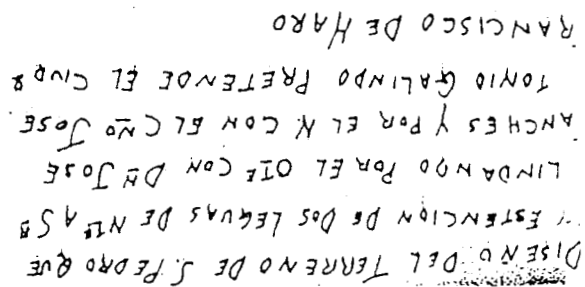 DISENO DEL TERRENO DE S. PEDRO QUE
Y ESTENCION DE DOS LEGUAS DE NTE A SR
LINDANDO POR EL OTE CON DN JOSE
ANCHES Y POR EL N CON EL CNO JOSE
TONIO GALINDO PRETENDE EL CIUD &
RANCISCO DE HARO